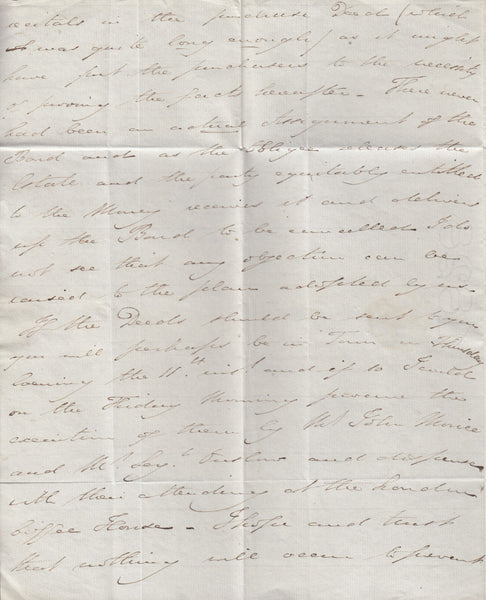 recitals in the purchase Deed (which
was quite long enough) as it might
have put the purchasers to the necessity
of proving the facts hereafter - There never
had been an actual Assignment of the
Bond and as the Obligee releases the
Estate and the party equitably entitled
to the Money receives it and delivers
up the Bond to be cancelled I do
not see that any objection can be
raised to the plan adopted by us.
If the Deeds should be sent to you
you will perhaps be in Town on Thursday
Evening the 11th inst and if so I could
on the Friday Morning procure the
execution of them by Mr John Morice
and Mr Onslow and dispense
with their attending at the London
Coffee House - I hope and trust
that nothing will occur to prevent